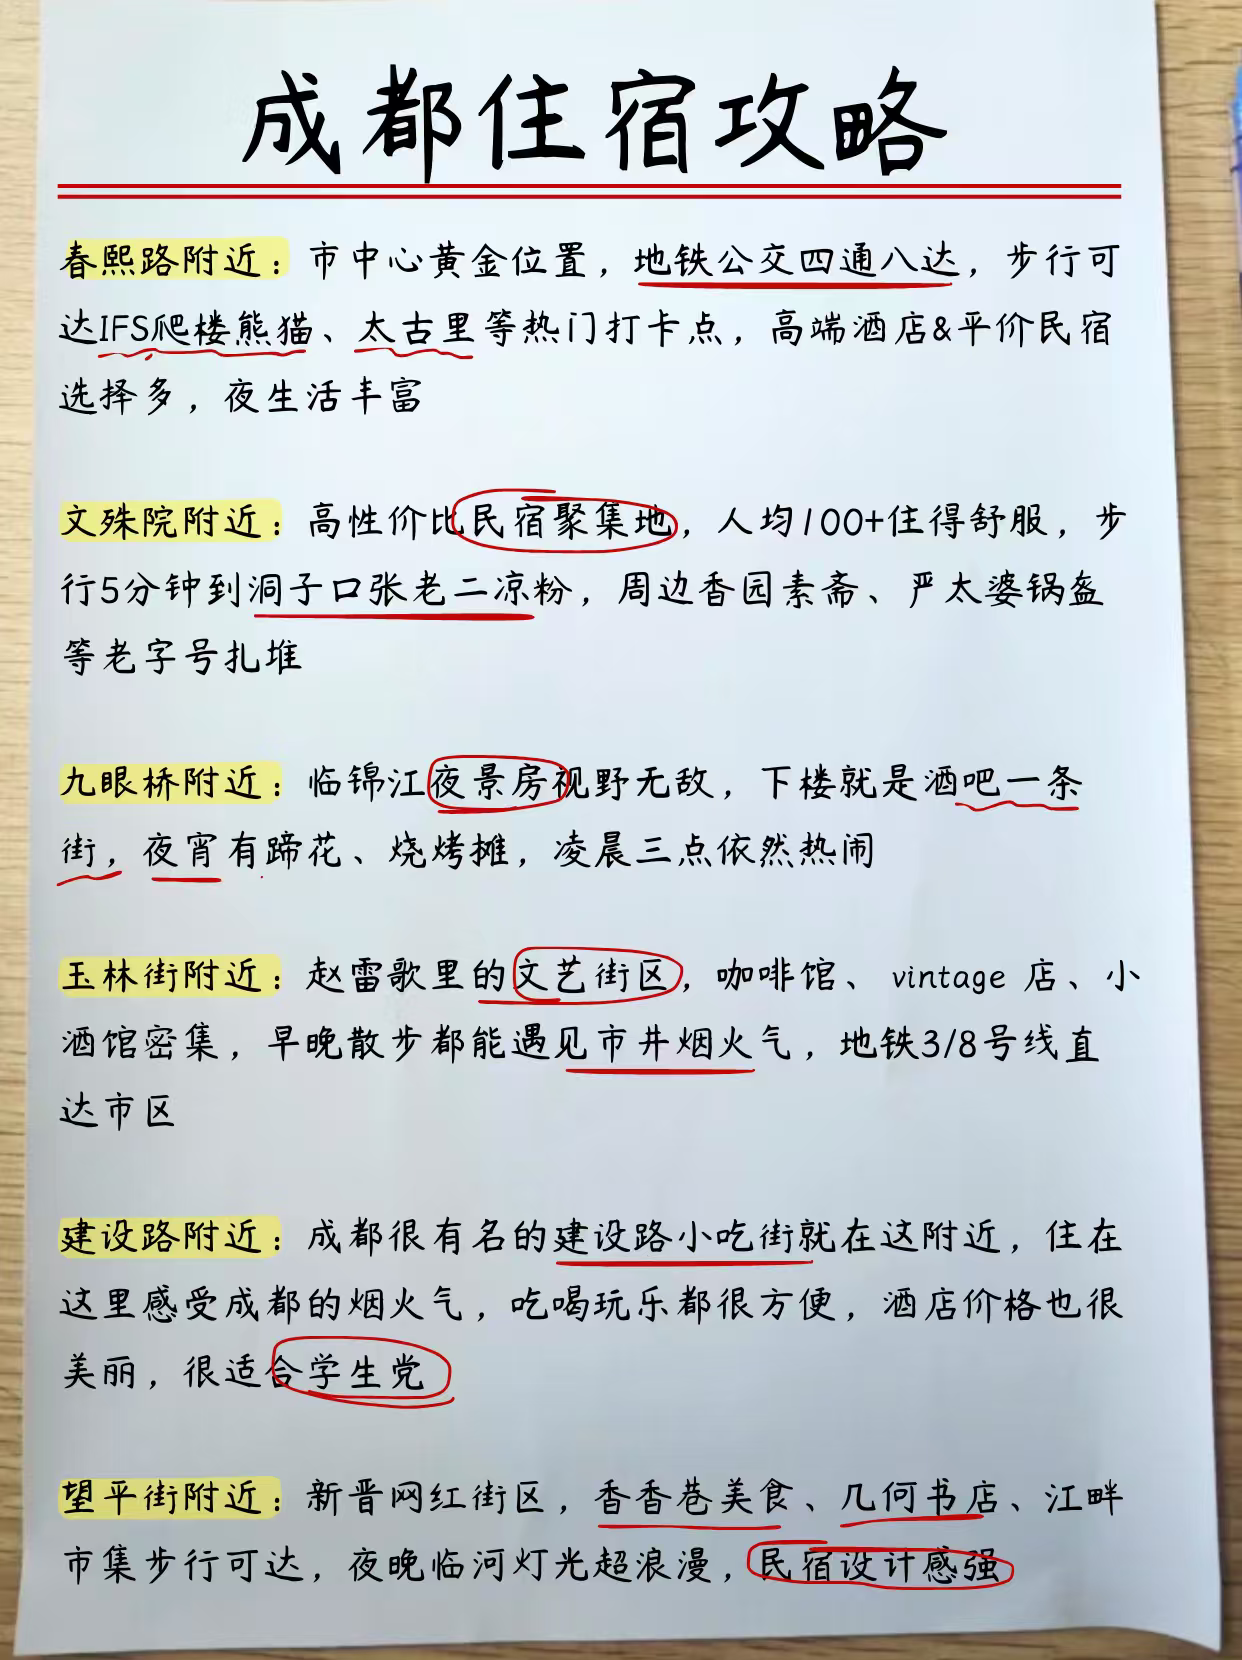 成都住宿攻略
春熙路附近：市中心黄金位置，地铁公交四通八达，步行可
达IFS爬楼熊猫、太古里等热门打卡点，高端酒店&平价民宿
选择多，夜生活丰富
文殊院附近：高性价比民宿聚集地，人均100+住得舒服，步
行5分钟到洞子口张老二凉粉，周边香园素斋、严太婆锅盔
等老字号扎堆
九眼桥附近：临锦江夜景房视野无敌，下楼就是酒吧一条
街，夜宵有蹄花、烧烤摊，凌晨三点依然热闹
玉林街附近：赵雷歌里的文艺街区，咖啡馆、vintage 店、小
酒馆密集，早晚散步都能遇见市井烟火气，地铁3/8号线直
达市区
建设路附近：成都很有名的建设路小吃街就在这附近，住在
这里感受成都的烟火气，吃喝玩乐都很方便，酒店价格也很
美丽，很适合学生党
望平街附近：新晋网红街区，香香巷美食、几何书店、江畔
市集步行可达，夜晚临河灯光超浪漫，民宿设计感强